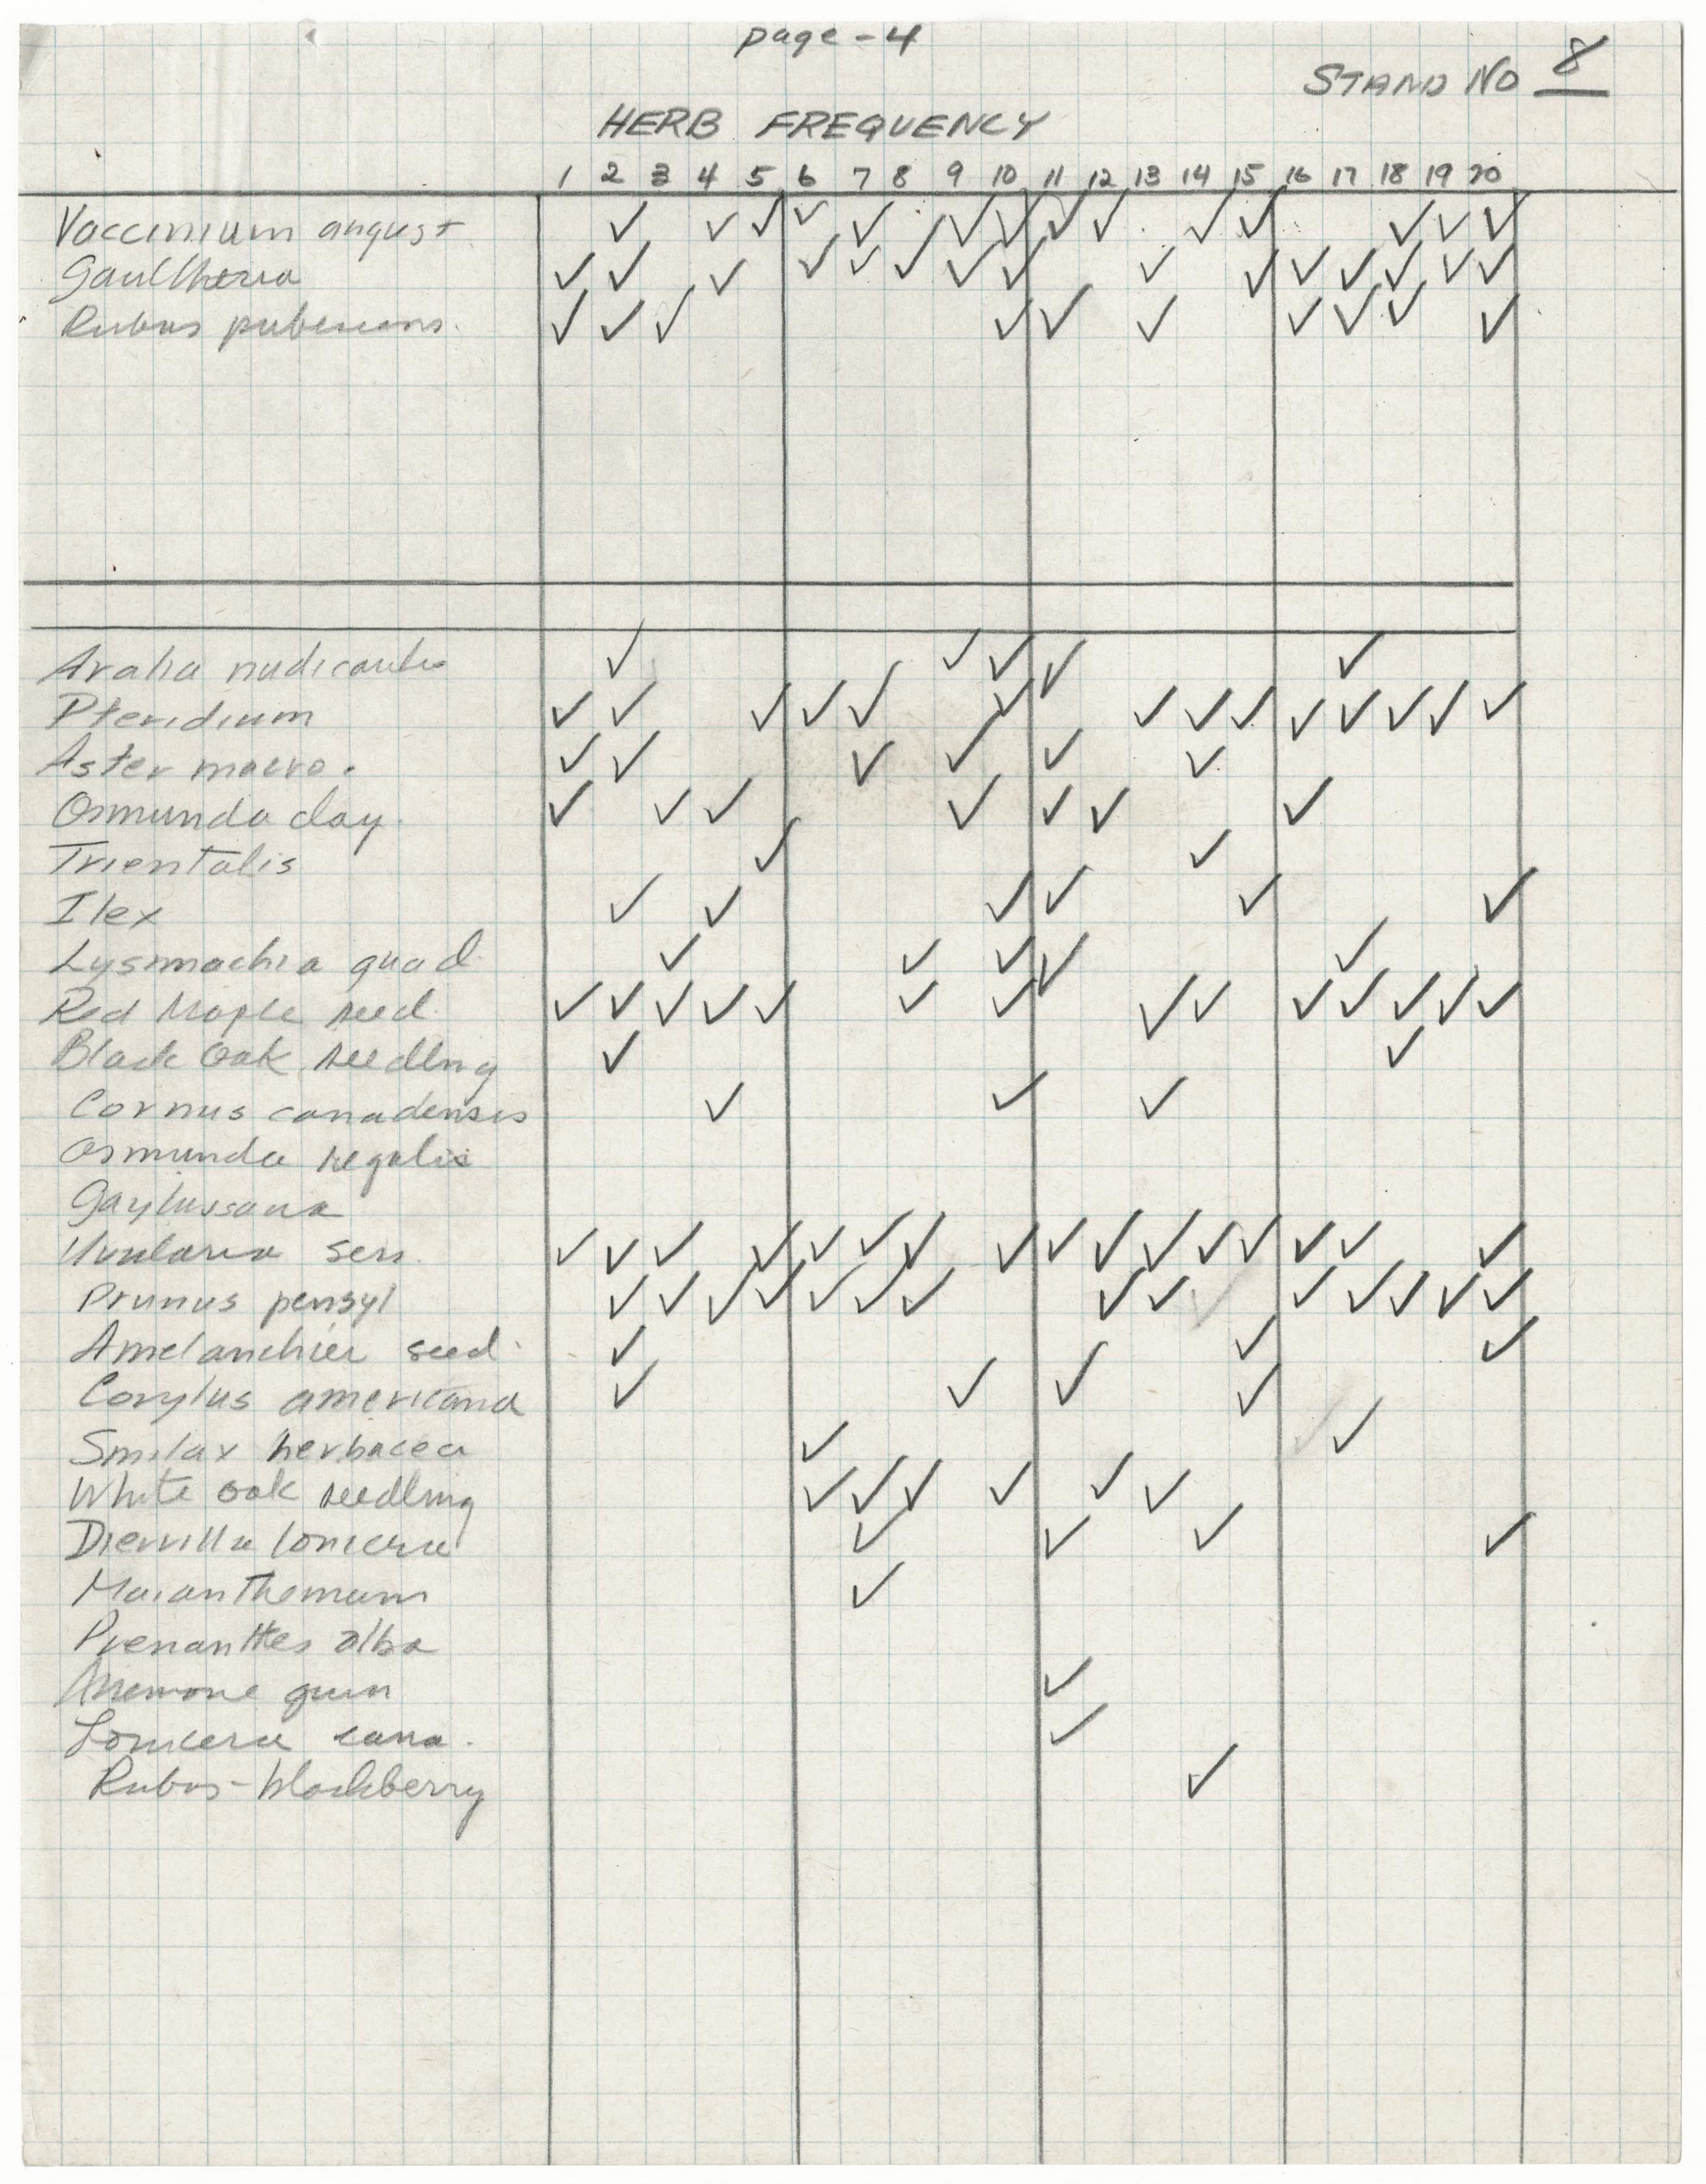 page - 4
STAND NO 8
HERB FREQUENCY
1 2 3 4 5 6 7 8 9 10 11 12 13 14 15 16 17 18 19 20
Vaccinium angust. ✓ ✓ ✓ ✓ ✓ ✓ ✓ ✓ ✓ ✓ ✓ ✓ ✓ ✓
Gaultheria ✓ ✓ ✓ ✓ ✓ ✓ ✓ ✓ ✓ ✓ ✓ ✓ ✓ ✓ ✓
Rubus pubescens. ✓ ✓ ✓ ✓ ✓ ✓ ✓ ✓ ✓ ✓
Aralia nudicaulis ✓ ✓ ✓ ✓ ✓
Pteridium ✓ ✓ ✓ ✓ ✓ ✓ ✓ ✓ ✓ ✓ ✓ ✓ ✓ ✓
Aster macro. ✓ ✓ ✓ ✓ ✓ ✓
Osmunda clay. ✓ ✓ ✓ ✓ ✓ ✓ ✓
Trientalis ✓ ✓
Ilex ✓ ✓ ✓ ✓ ✓ ✓
Lysimachia quad. ✓ ✓ ✓ ✓ ✓
Red Maple seed. ✓ ✓ ✓ ✓ ✓ ✓ ✓ ✓ ✓ ✓ ✓ ✓ ✓ ✓
Black Oak seedlng ✓ ✓
Cornus canadensis ✓ ✓ ✓
Osmunda regalis
Gaylussacia
Uvularia sess. ✓ ✓ ✓ ✓ ✓ ✓ ✓ ✓ ✓ ✓ ✓ ✓ ✓ ✓ ✓ ✓
Prunus pensyl ✓ ✓ ✓ ✓ ✓ ✓ ✓ ✓ ✓ ✓ ✓ ✓ ✓ ✓
Amelanchier seed. ✓ ✓ ✓
Corylus americana ✓ ✓ ✓ ✓
Smilax herbacea ✓ ✓
White oak seedling ✓ ✓ ✓ ✓ ✓ ✓
Diervilla lonicera ✓ ✓ ✓ ✓
Maianthemum ✓
Prenanthes alba
Anemone quin ✓
Lonicera cana. ✓
Rubus - blackberry ✓